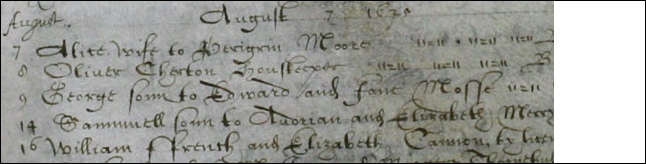 August.. August 7 1670
7 Alice wife to Perigrin Moore
8 Oliver Cherton Houskeeper
9 George sonn to Edward and Jane Mosse
14 Sammwell sonn to Adrian and Elizabeth
16 William ffrench and Elizabeth Cannon by